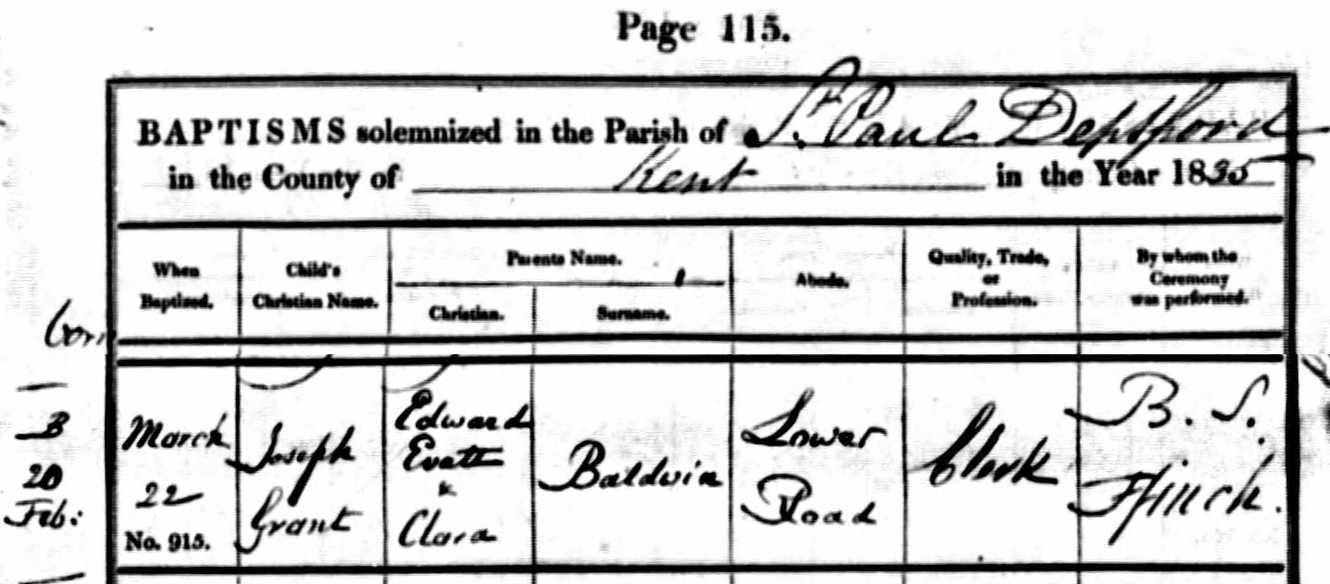 Page 115.
BAPTISMS solemnized in the Parish of St. Paul Deptford
in the County of Kent in the Year 1835
When Baptized.
Child's Christian Name.
Parents Name.
Christian.
Surname.
Abode.
Quality, Trade, or Profession.
By whom the Ceremony was performed.
born
B
20
Feb:
March
22
No. 915.
Joseph
Grant
Edward
Evatt
&
Clara
Baldwin
Lower
Road
Clerk
B. S.
Ffinch.